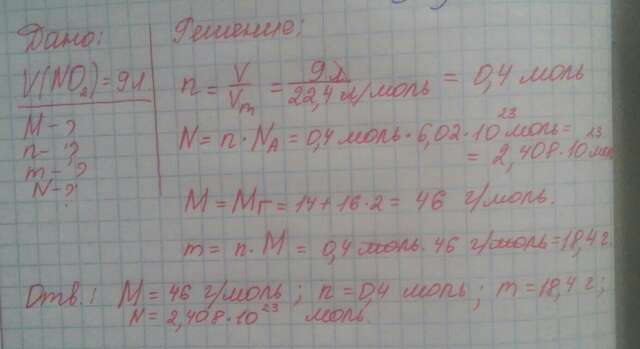 Дано:
V(NO2)=9л
M-?
n-?
m-?
N-?
Решение:
n = V/Vm = 9л/22,4 л/моль = 0,4 моль
N = n·NA = 0,4 моль·6,02·10^23 моль=
= 2,408·10^23 мол
M = Mr = 14+16·2 = 46 г/моль.
m = n·M = 0,4 моль·46 г/моль=18,4г.
Отв.: M = 46 г/моль; n = 0,4 моль; m = 18,4 г;
N = 2,408·10^23 моль.